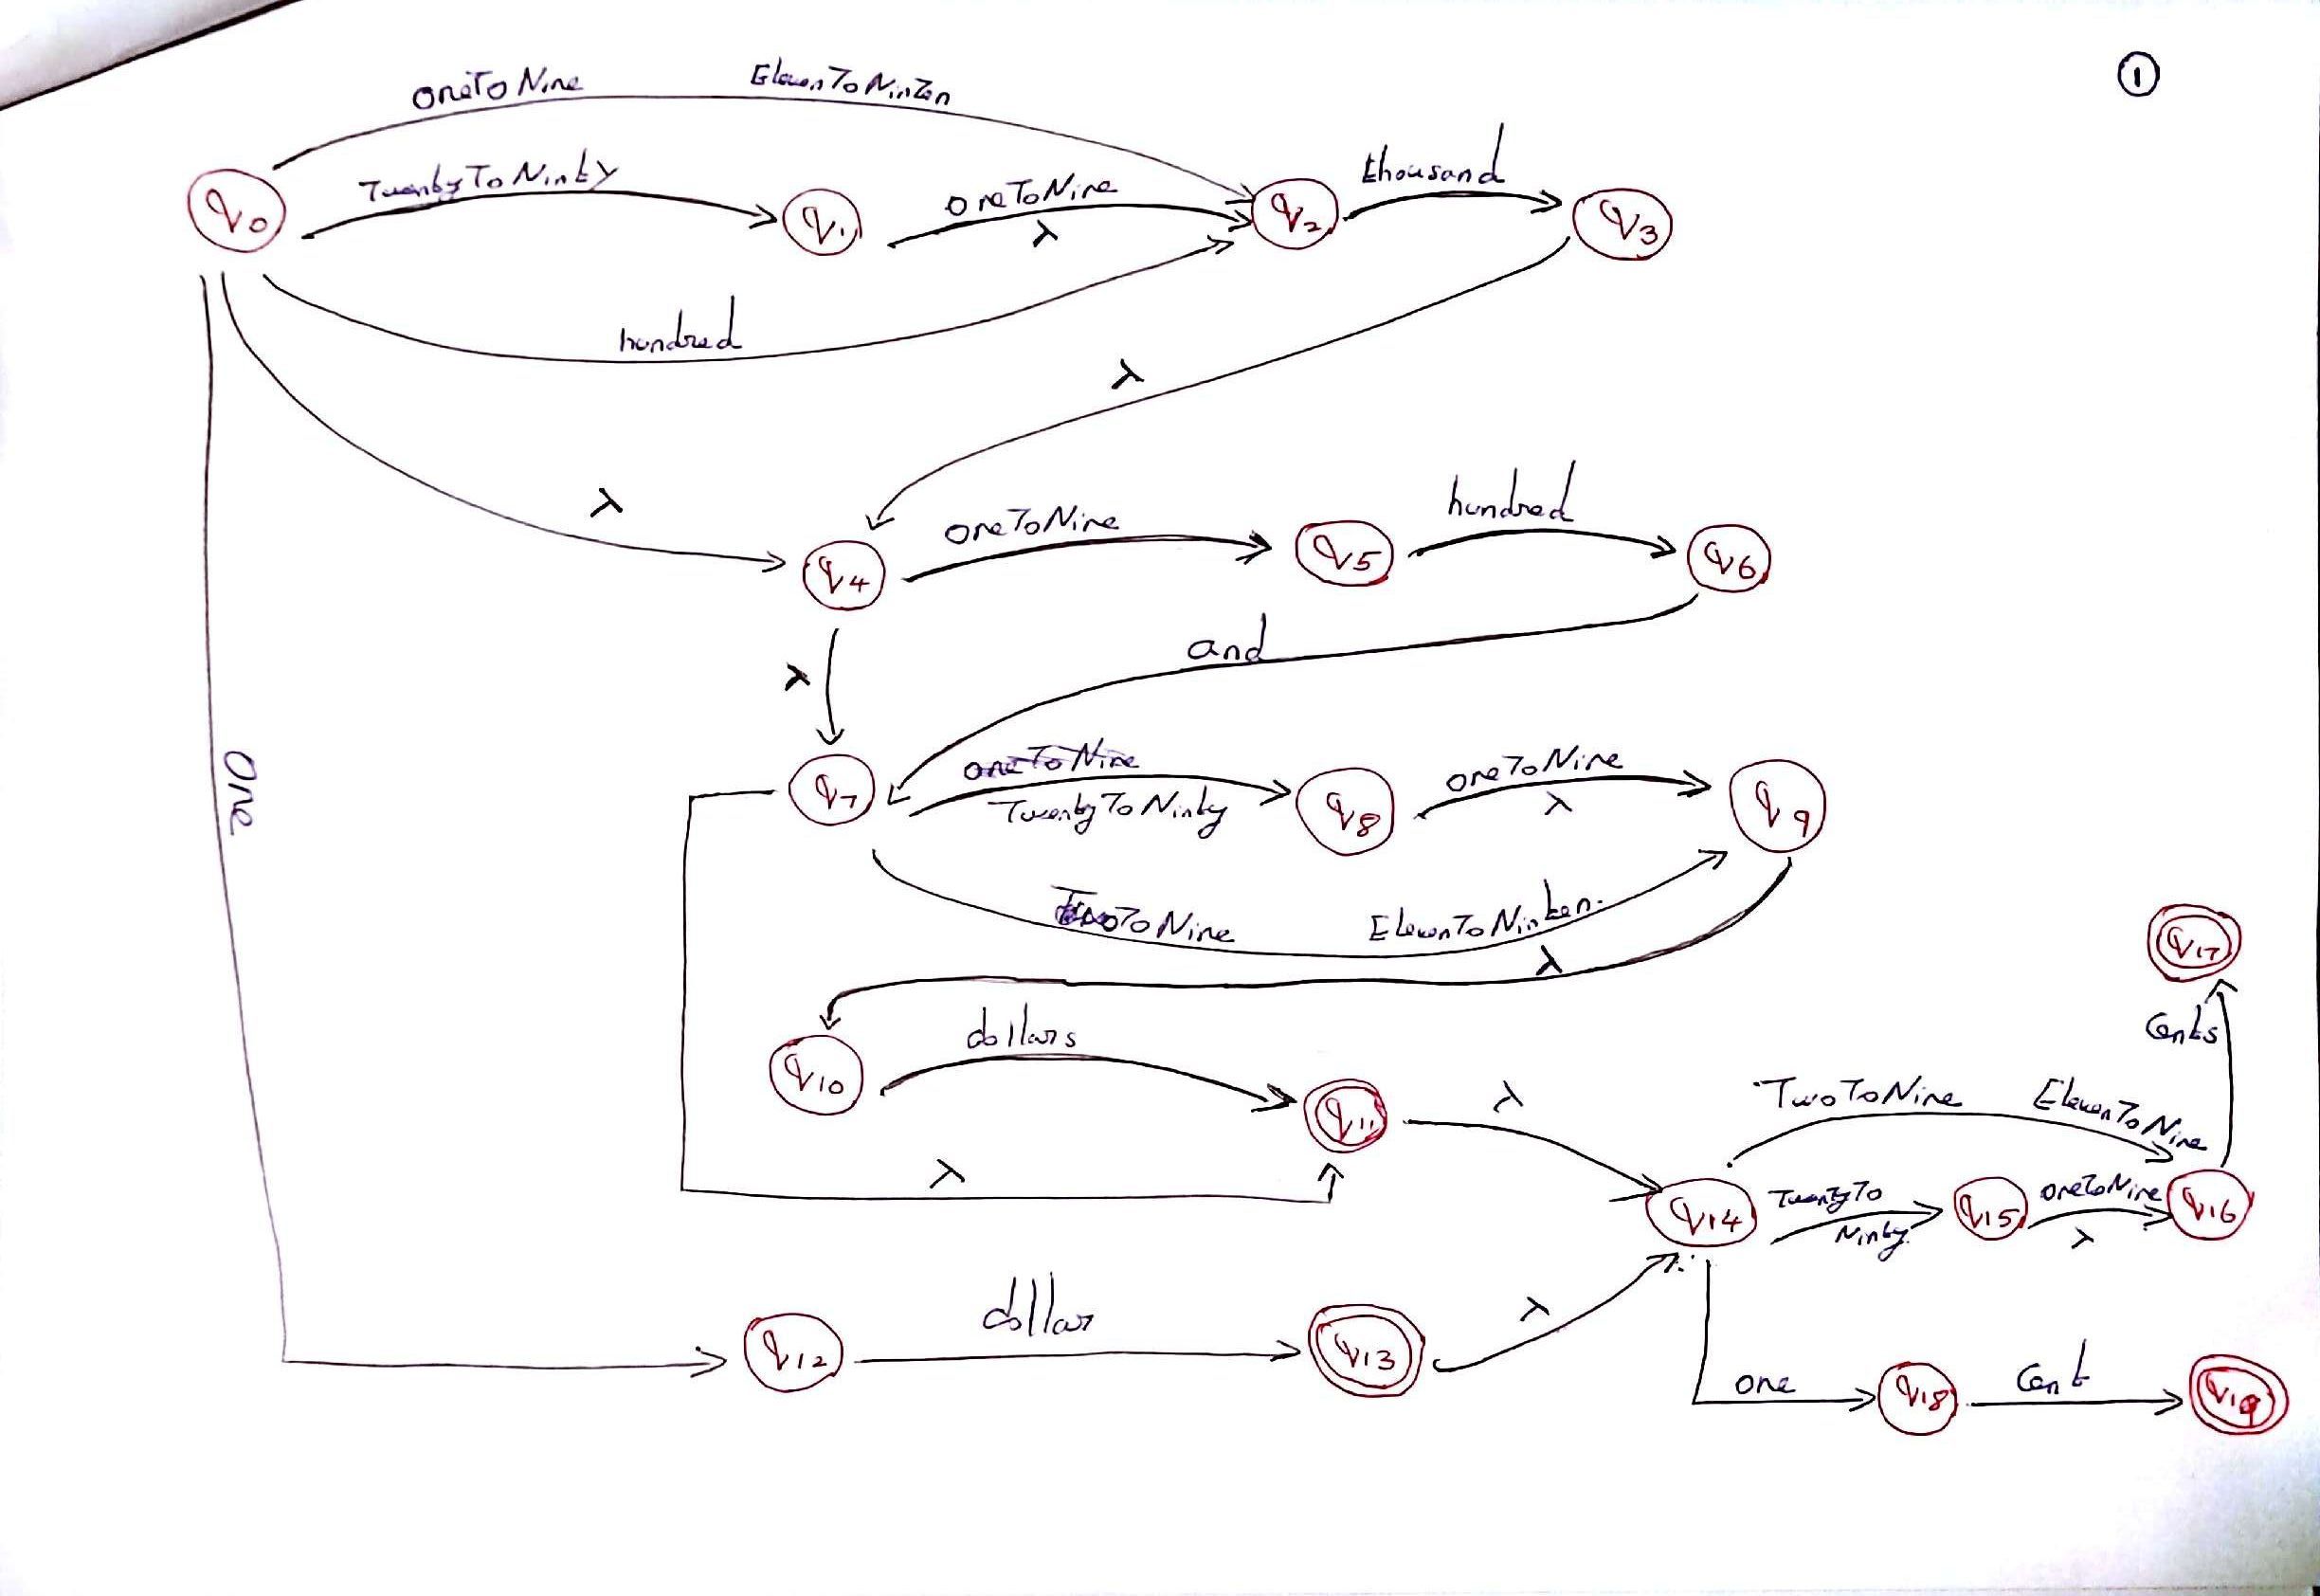 1
oneToNine ElevenToNinten
q0 TwentyToNinty q1 oneToNine λ q2 thousand q3
hundred
λ
λ
q4 oneToNine q5 hundred q6
and
λ
one
q7 oneToNine TwentyToNinty q8 oneToNine λ q9
TwoToNine ElevenToNinten.
λ
q10 dollars q11 λ
q17
Cents
TwoToNine ElevenToNine
λ
q14 TwentyTo Ninty q15 oneToNine λ q16
q12 dollar q13 λ
one q18 Cent q19